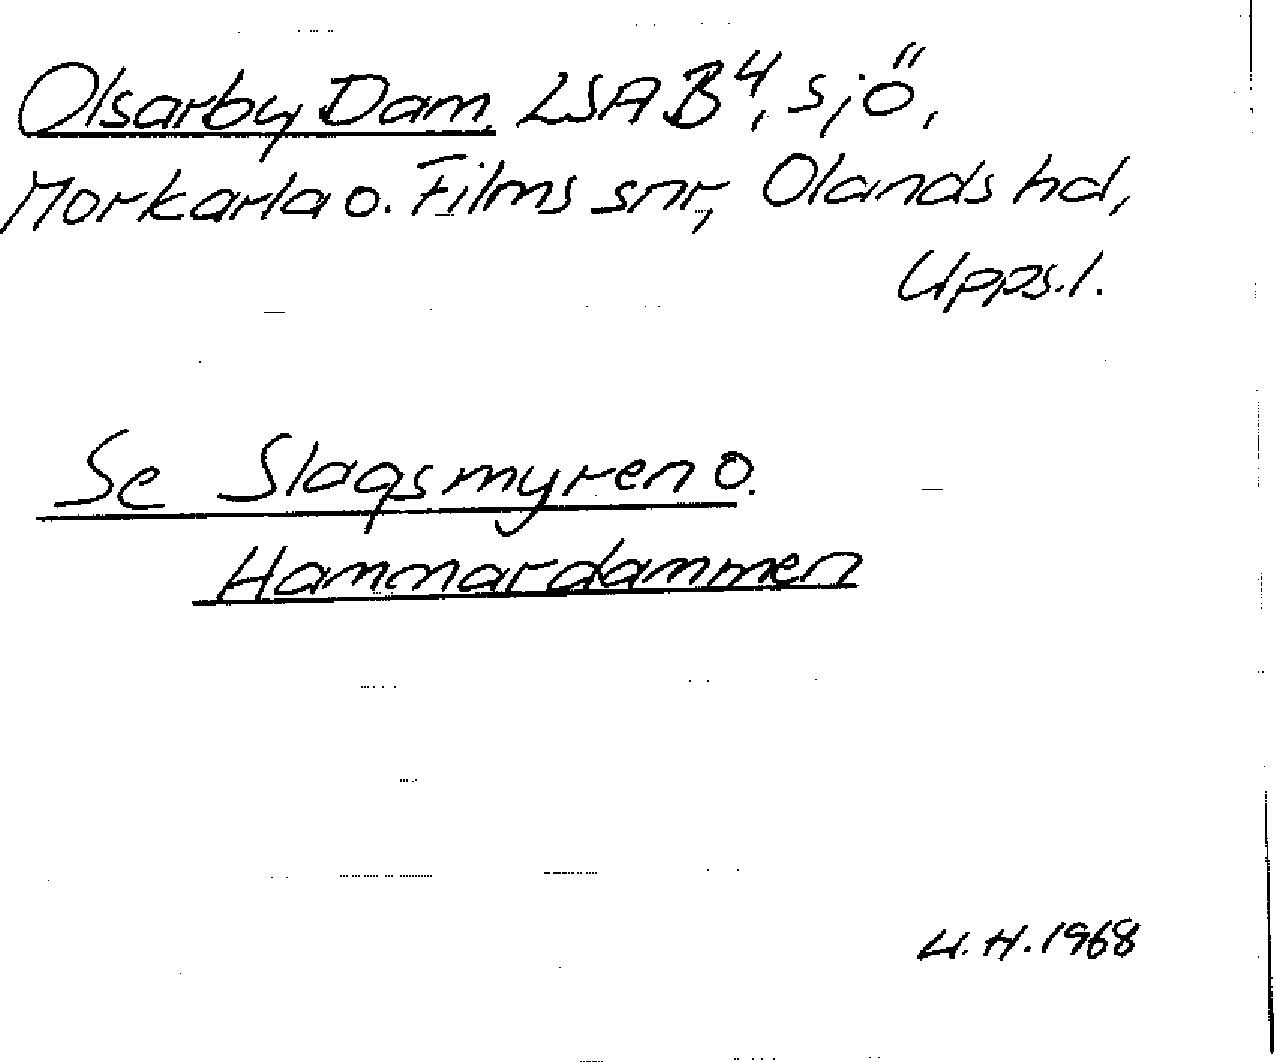 Olsarby Dam, LSA B4, sjö,
Morkarla o. Films snr, Olands hd,
Upps.l.
Se Slagsmyren o.
Hammardammen
U.H.1968